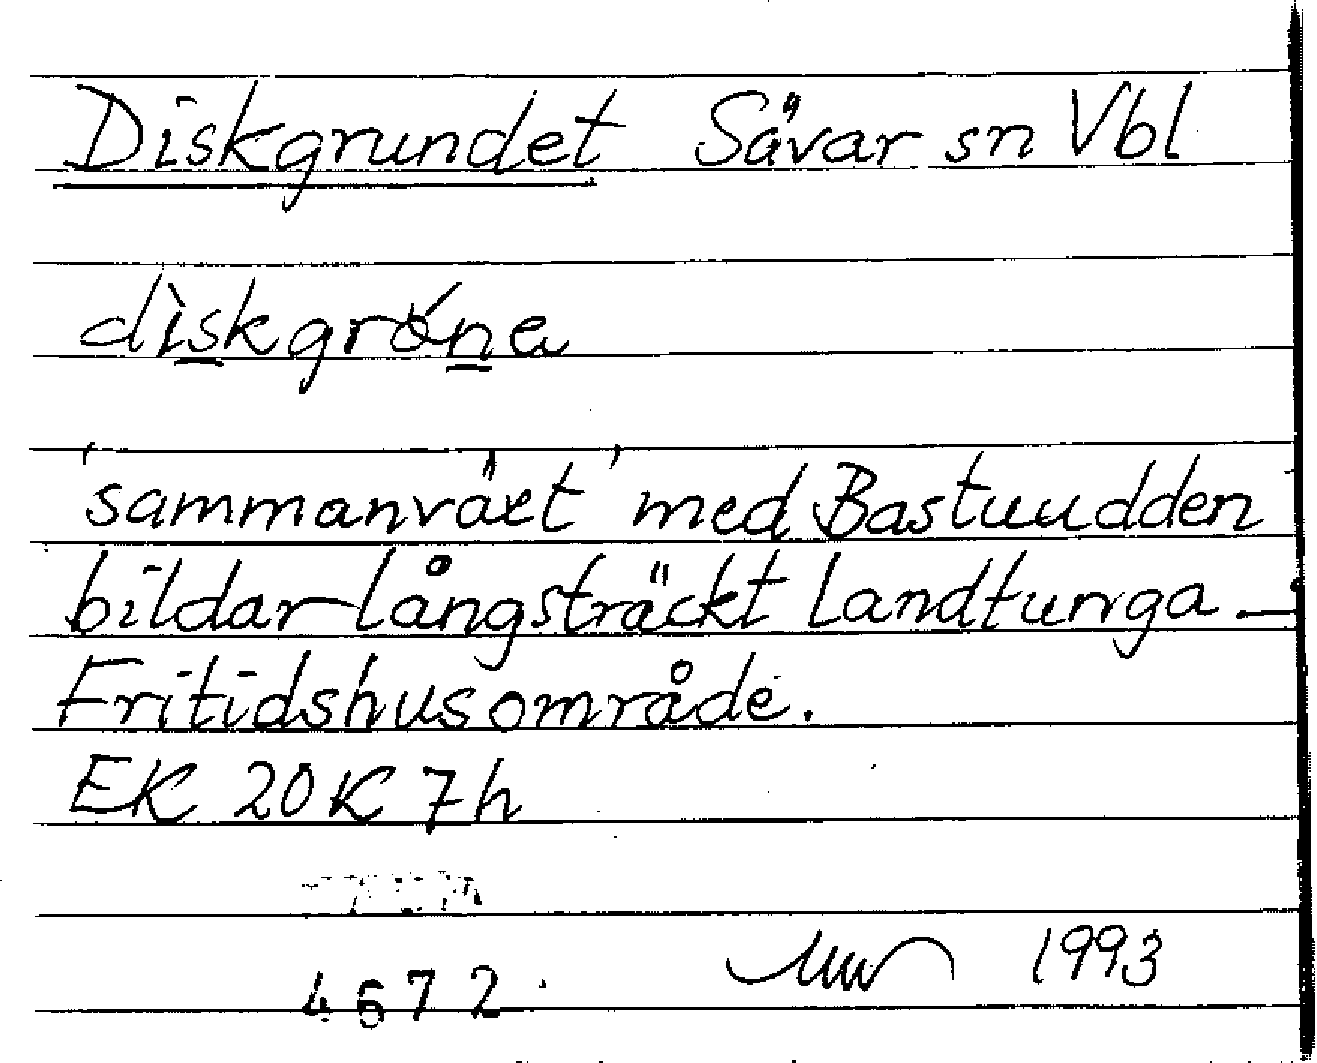 Diskgrundet Sävar sn Vbl
dìskgrǿne
'sammanväxt' med Bastuudden
bildar långsträckt landtunga –
Fritidshusområde.
EK 20K 7h
1993
4672